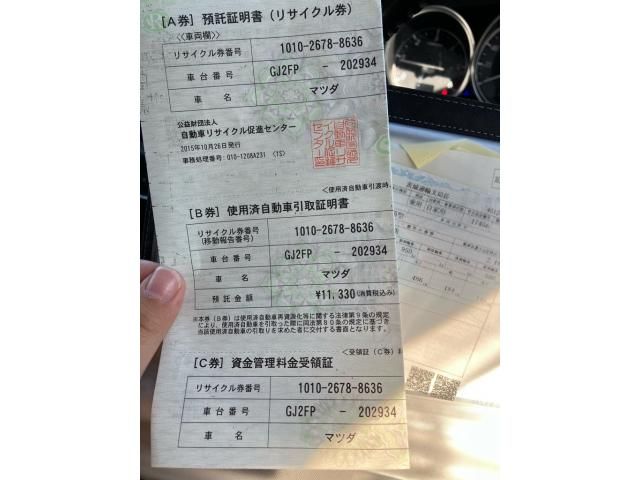 [A券] 預託証明書(リサイクル券)
<<車両欄>>
リサイクル券番号 1010-2678-8636
車台番号 GJ2FP - 202934
車名 マツダ
公益財団法人
自動車リサイクル促進センター
2015年10月26日発行
事務処理番号:010-1208A231 <TS>
<使用済自動車引渡時
[B券] 使用済自動車引取証明書
リサイクル券番号 1010-2678-8636
(移動報告番号)
車台番号 GJ2FP - 202934
車名 マツダ
預託金額 ¥11,330(消費税込み)
※本券(B券)は使用済自動車再資源化等に関する法律第9条の規定
により、使用済自動車を引取った際に同法第80条の規定に基づき
当該使用済自動車の引取りを求めた者に交付する書面となります。
<受領証(C券)
[C券] 資金管理料金受領証
リサイクル券番号 1010-2678-8636
車台番号 GJ2FP - 202934
車名 マツダ